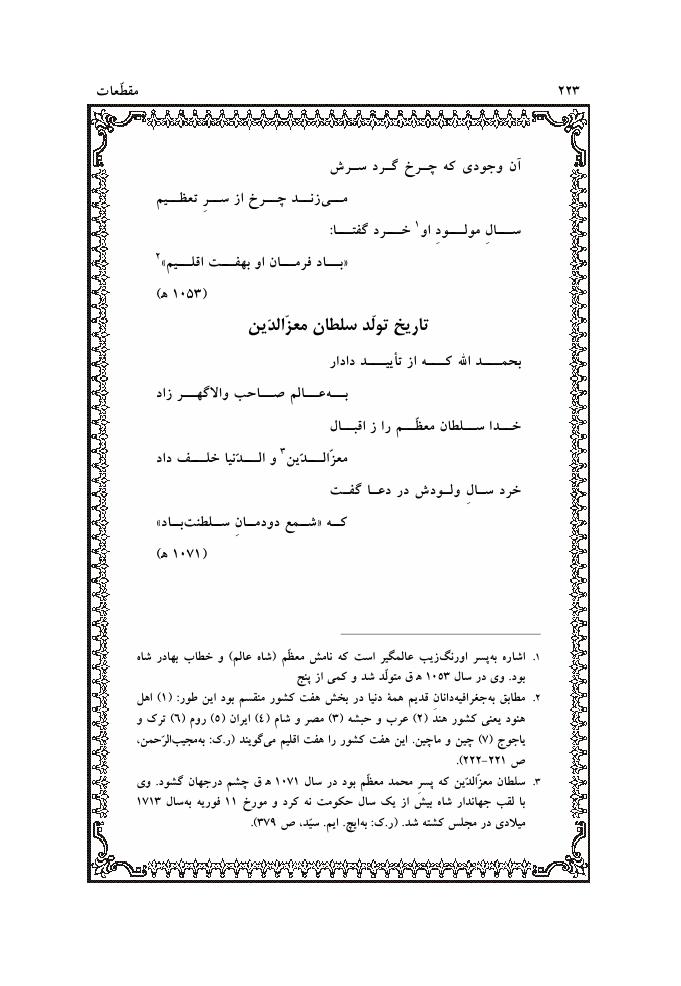 مقطّعات ۲۲۳
آن وجودی که چرخ گرد سرش
می‌زند چرخ از سرِ تعظیم
سالِ مولودِ او۱ خرد گفتا:
«باد فرمان او بهفت اقلیم»۲
(۱۰۵۳ ه)
تاریخ تولّد سلطان معزّالدّین
بحمد الله که از تأیید دادار
به‌عالم صاحب والاگهر زاد
خدا سلطان معظّم را ز اقبال
معزّالدّین۳ و الدّنیا خلف داد
خرد سالِ ولودش در دعا گفت
که «شمع دودمانِ سلطنت‌باد»
(۱۰۷۱ ه)
۱. اشاره به‌پسر اورنگ‌زیب عالمگیر است که نامش معظّم (شاه عالم) و خطاب بهادر شاه
بود. وی در سال ۱۰۵۳ ه‍ ق متولّد شد و کمی از پنج
۲. مطابق به‌جغرافیه‌دانانِ قدیم همهٔ دنیا در بخش هفت کشور منقسم بود این طور: (۱) اهل
هنود یعنی کشور هند (۲) عرب و حبشه (۳) مصر و شام (۴) ایران (۵) روم (۶) ترک و
یاجوج (۷) چین و ماچین. این هفت کشور را هفت اقلیم می‌گویند (ر.ک: به‌مجیب‌الرّحمن،
ص ۲۲۱-۲۲۲).
۳. سلطان معزّالدّین که پسرِ محمد معظّم بود در سال ۱۰۷۱ ه‍ ق چشم درجهان گشود. وی
با لقب جهاندار شاه بیش از یک سال حکومت نه کرد و مورخ ۱۱ فوریه به‌سال ۱۷۱۳
میلادی در مجلس کشته شد. (ر.ک: به‌ایچ. ایم. سیّد، ص ۳۷۹).